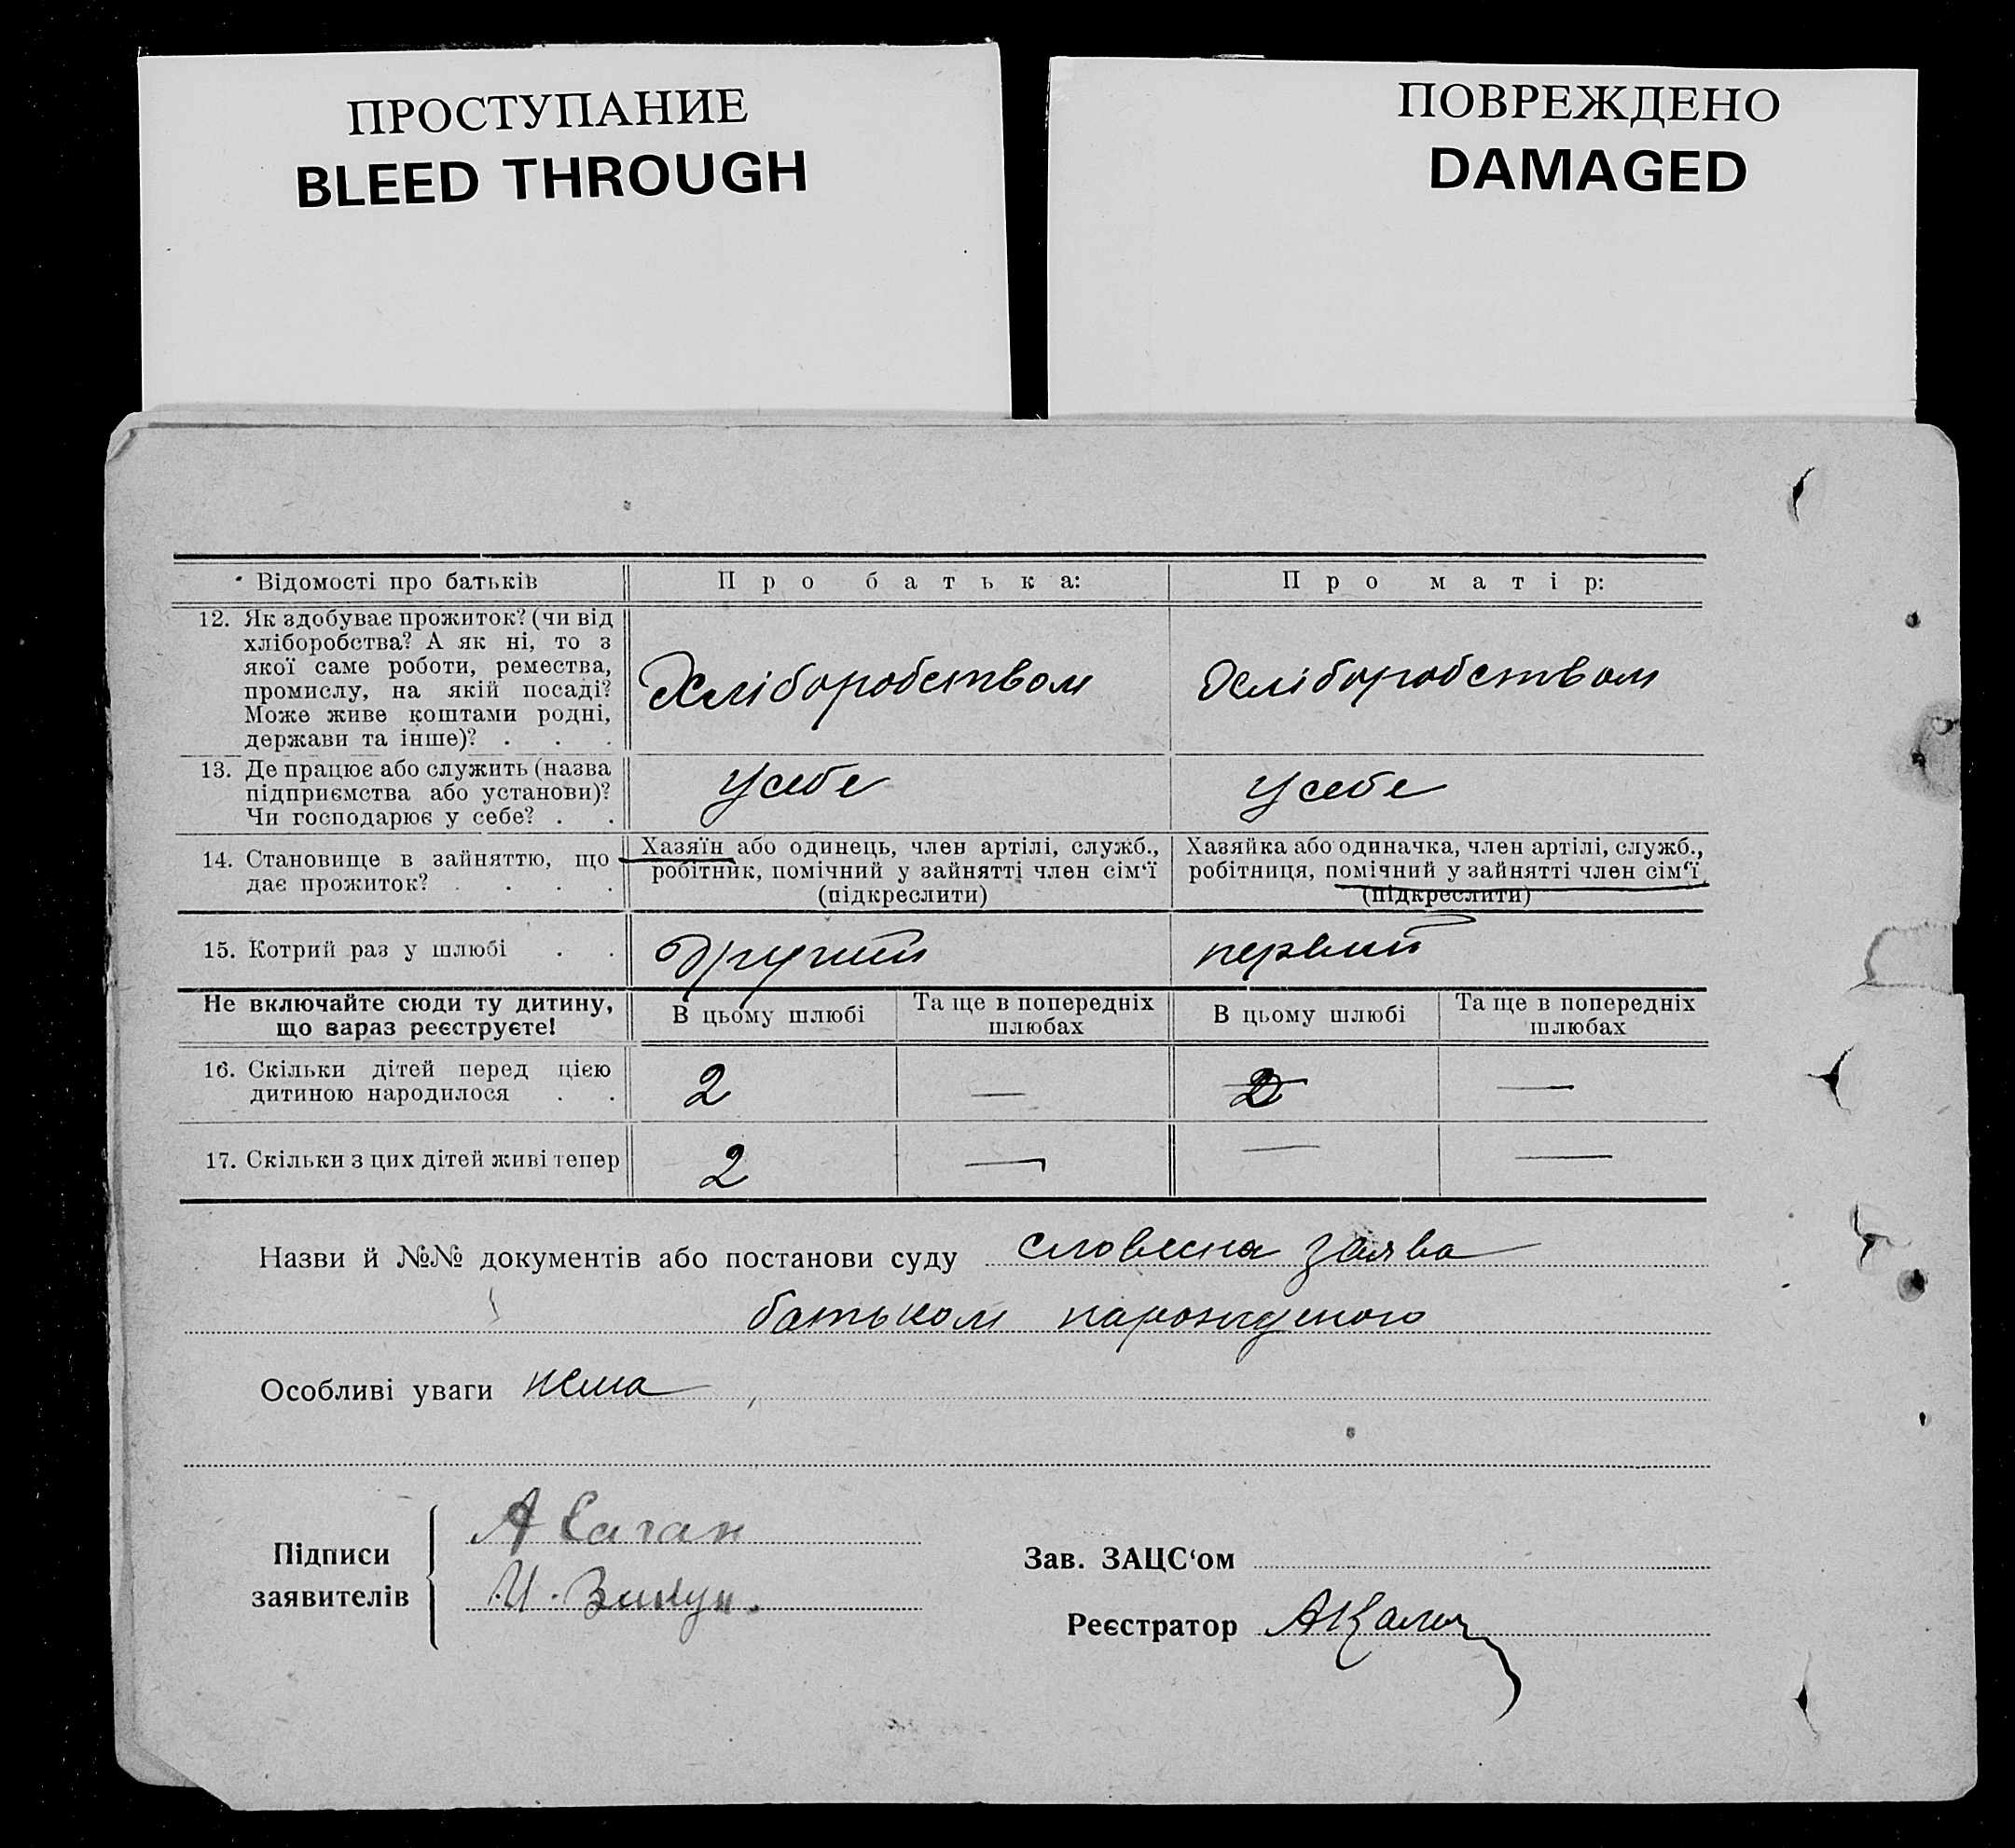 ПРОСТУПАНИЕ
BLEED THROUGH
ПОВРЕЖДЕНО
DAMAGED
Відомості про батьків
Про батька:
Про матір:
12. Як здобуває прожиток? (чи від
хліборобства? А як ні, то з
якої саме роботи, ремества,
промислу, на якій посаді?
Може живе коштами родні,
держави та інше)? . . .
Хліборобством
Хліборобством
13. Де працює або служить (назва
підприємства або установи)?
Чи господарює у себе? . .
У себе
У себе
14. Становище в зайняттю, що
дає прожиток? . . . .
Хазяїн або одинець, член артілі, служб.,
робітник, помічний у зайнятті член сім‘ї
(підкреслити)
Хазяйка або одиначка, член артілі, служб.,
робітниця, помічний у зайнятті член сім‘ї
(підкреслити)
15. Котрий раз у шлюбі . .
другий
первий
Не включайте сюди ту дитину,
що зараз реєструєте!
В цьому шлюбі
Та ще в попередніх
шлюбах
В цьому шлюбі
Та ще в попередніх
шлюбах
16. Скільки дітей перед цією
дитиною народилося . .
2
—
2
—
17. Скільки з цих дітей живі тепер
2
—
—
—
Назви й №№ документів або постанови суду словесна заява
батьком народженого
Особливі уваги нема
Підписи
заявителів
А Саган
Зав. ЗАЦС‘ом
И.
Реєстратор